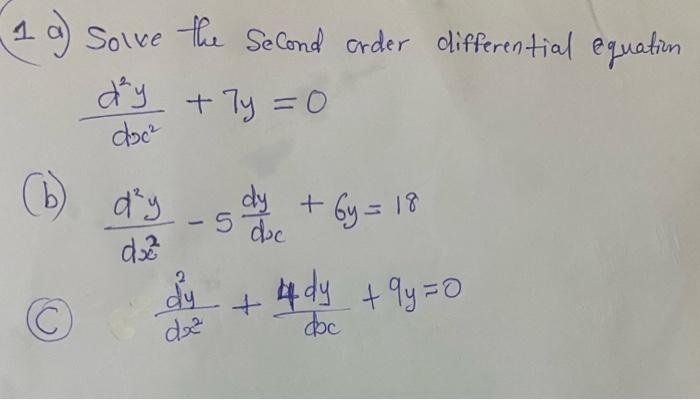 (1 a) Solve the Second order differential equation
d²y/dx² + 7y = 0
(b) d²y/dx² - 5 dy/dx + 6y = 18
(c) d²y/dx² + 4dy/dx + 9y = 0